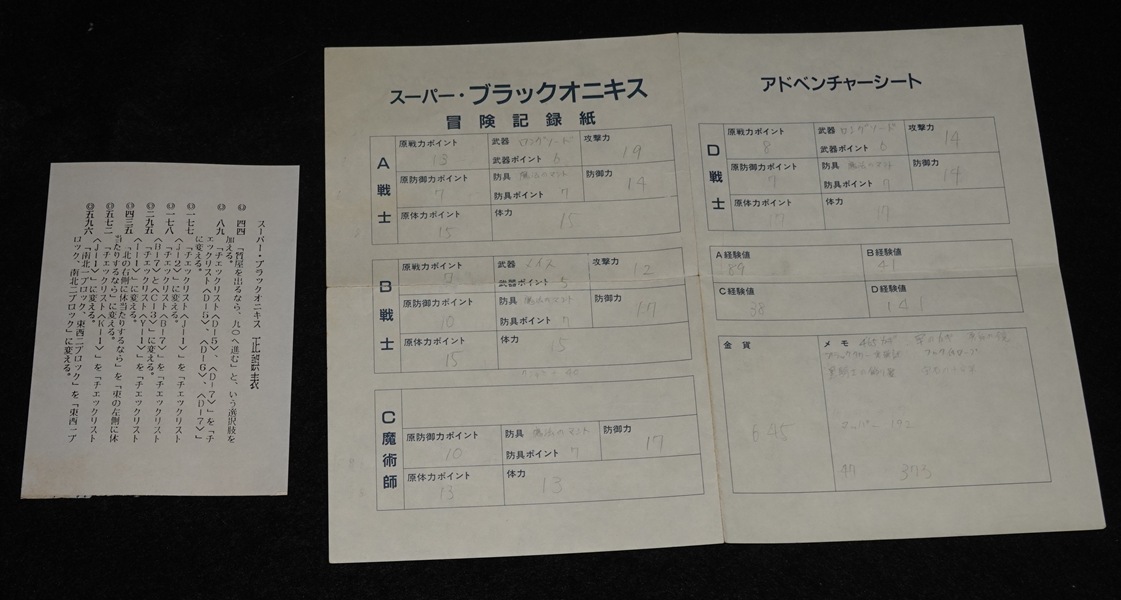 スーパー・ブラックオニキス 正誤表
◎四四 「質屋を出るなら、九〇へ進む」と、いう選択肢を
加える。
◎八九 「チェックリスト〈D-5〉、〈D-7〉」を「チ
ェックリスト〈D-5〉、〈D-6〉、〈D-7〉」
に変える。
◎一七七 「チェックリスト〈J-1〉」を「チェックリスト
〈J-2〉」に変える。
◎一七八 「チェックリスト〈B-7〉」を「チェックリスト
〈B-7〉と〈C-3〉」に変える。
◎二九五 「チェックリスト〈Y-1〉」を「チェックリスト
〈I-1〉」に変える。
◎四三五 「北の右側に体当たりするなら」を「東の左側に体
当たりするなら」に変える。
◎五七二 「チェックリスト〈K-1〉」を「チェックリスト
〈J-1〉」に変える。
◎五九六 「南北一ブロック、東西二ブロック」を「東西一ブ
ロック、南北二ブロック」に変える。
スーパー・ブラックオニキス
冒険記録紙
A戦士
原戦力ポイント 13
武器 ロングソード
武器ポイント 6
攻撃力 19
原防御力ポイント 7
防具 魔法のマント
防具ポイント 7
防御力 14
原体力ポイント 15
体力 15
B戦士
原戦力ポイント 7
武器 メイス
武器ポイント 5
攻撃力 12
原防御力ポイント 10
防具 魔法のマント
防具ポイント 7
防御力 17
原体力ポイント 15
体力 15
C魔術師
原防御力ポイント 10
防具 魔法のマント
防具ポイント 7
防御力 17
原体力ポイント 13
体力 13
アドベンチャーシート
D戦士
原戦力ポイント 8
武器 ロングソード
武器ポイント 6
攻撃力 14
原防御力ポイント 7
防具 魔法のマント
防具ポイント 7
防御力 14
原体力ポイント 17
体力 17
A経験値 89
B経験値 41
C経験値 38
D経験値 141
金貨 645
メモ
47 373